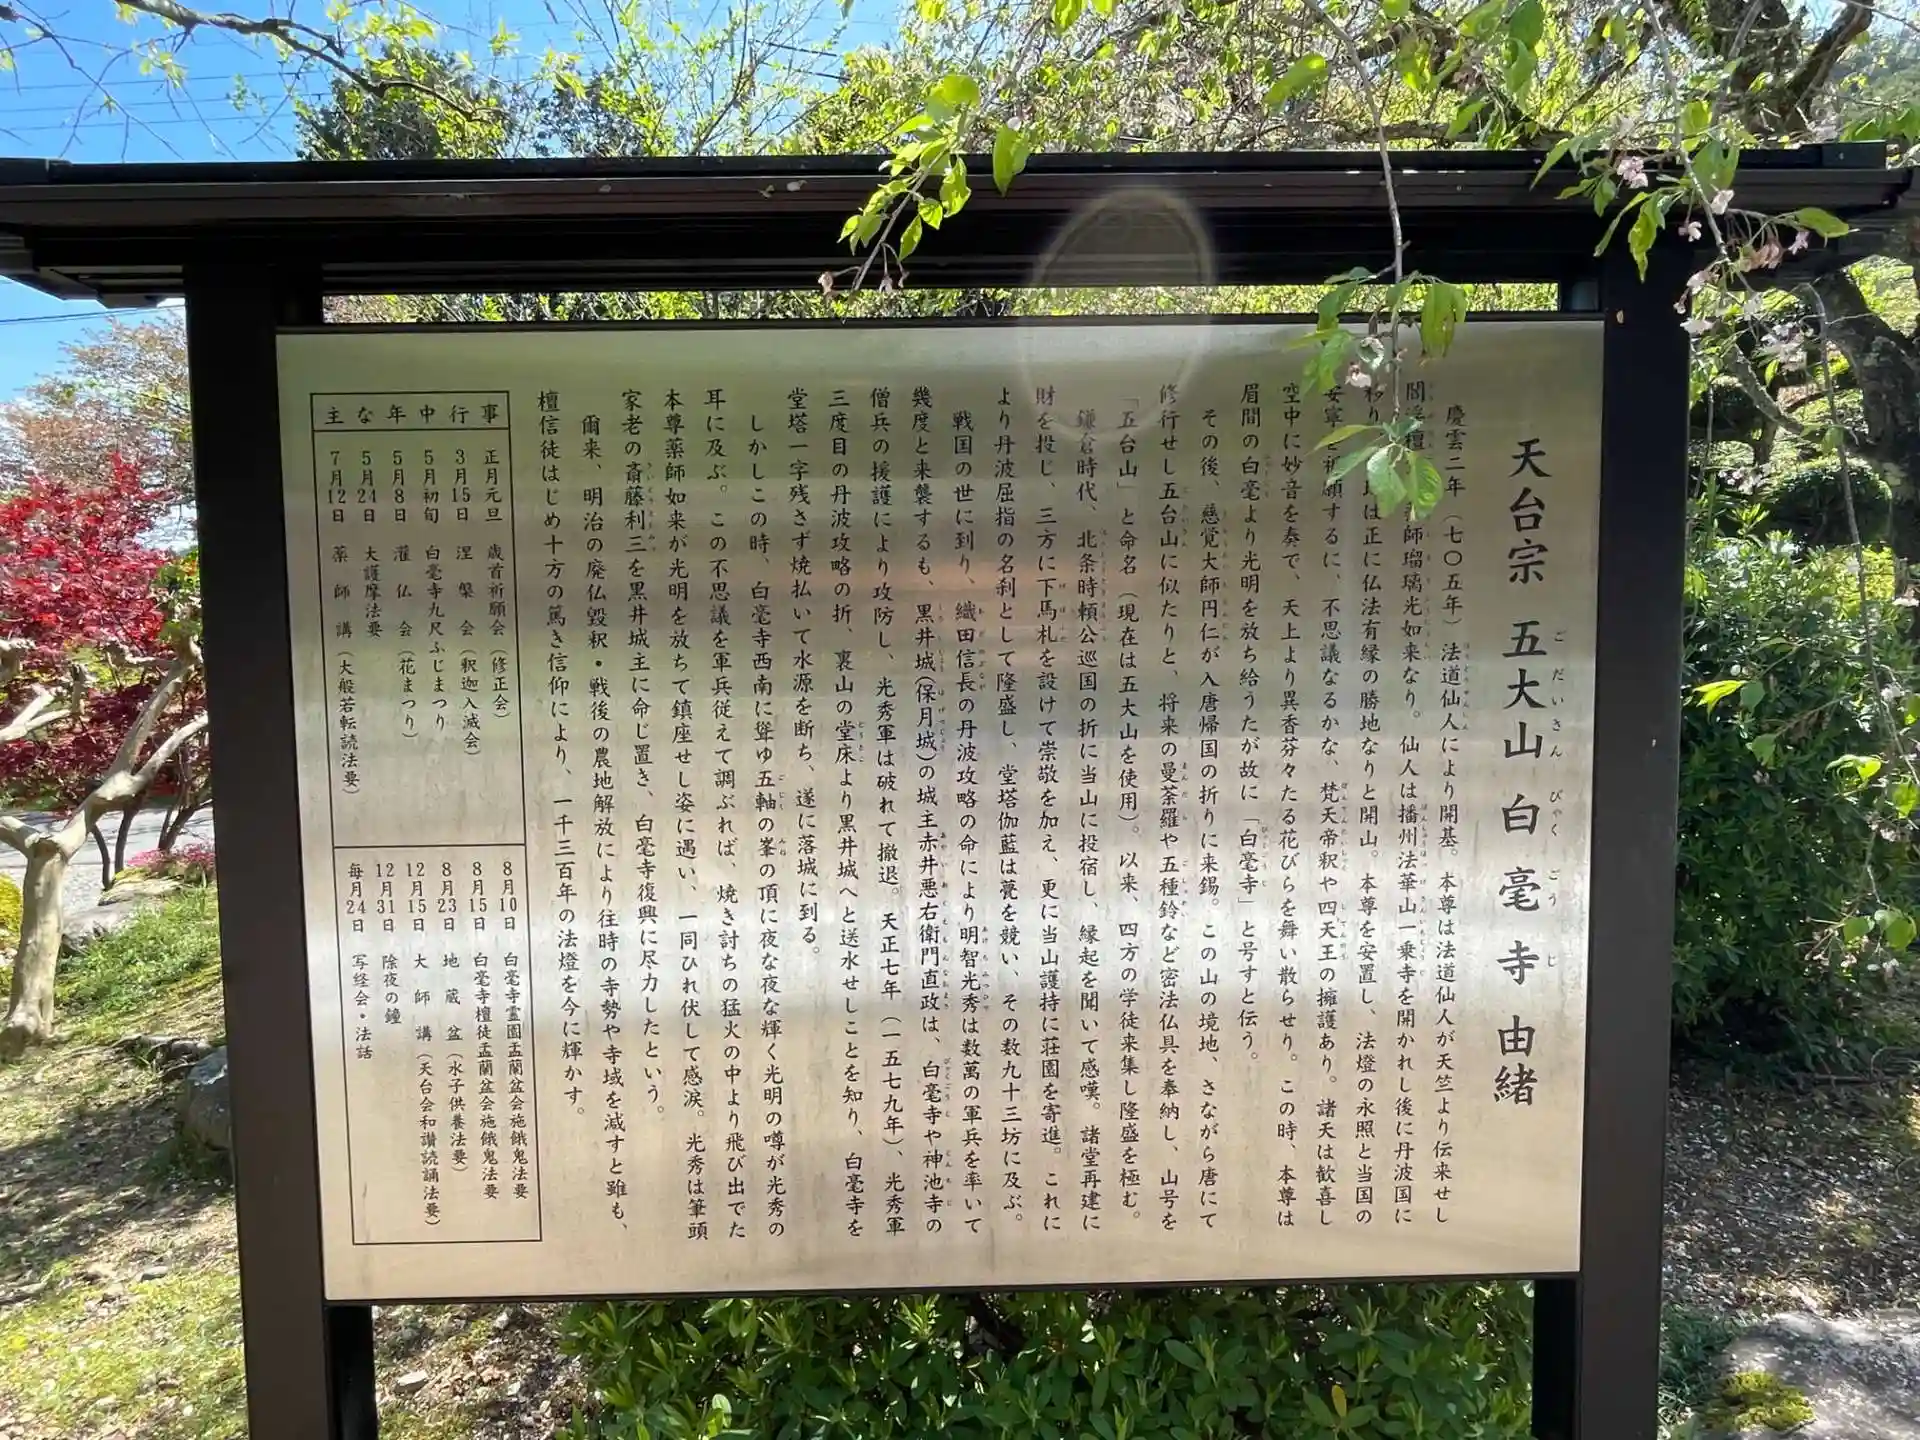 天台宗 五大山 白毫寺 由緒
慶雲二年（七〇五年）法道仙人により開基。本尊は法道仙人が天竺より伝来せし
閻浮檀 師瑠璃光如来なり。仙人は播州法華山一乗寺を開かれし後に丹波国に
移り は正に仏法有縁の勝地なりと開山。本尊を安置し、法燈の永照と当国の
安寧を祈願するに、不思議なるかな、梵天帝釈や四天王の擁護あり。諸天は歓喜し
空中に妙音を奏で、天上より異香芬々たる花びらを舞い散らせり。この時、本尊は
眉間の白毫より光明を放ち給うたが故に「白毫寺」と号すと伝う。
その後、慈覚大師円仁が入唐帰国の折りに来錫。この山の境地、さながら唐にて
修行せし五台山に似たりと、将来の曼荼羅や五種鈴など密法仏具を奉納し、山号を
「五台山」と命名（現在は五大山を使用）。以来、四方の学徒来集し隆盛を極む。
鎌倉時代、北条時頼公巡国の折に当山に投宿し、縁起を聞いて感嘆。諸堂再建に
財を投じ、三方に下馬札を設けて崇敬を加え、更に当山護持に荘園を寄進。これに
より丹波屈指の名刹として隆盛し、堂塔伽藍は甍を競い、その数九十三坊に及ぶ。
戦国の世に到り、織田信長の丹波攻略の命により明智光秀は数萬の軍兵を率いて
幾度と来襲するも、黒井城(保月城)の城主赤井悪右衛門直政は、白毫寺や神池寺の
僧兵の援護により攻防し、光秀軍は破れて撤退。天正七年（一五七九年）、光秀軍
三度目の丹波攻略の折、裏山の堂床より黒井城へと送水せしことを知り、白毫寺を
堂塔一字残さず焼払いて水源を断ち、遂に落城に到る。
しかしこの時、白毫寺西南に聳ゆ五軸の峯の頂に夜な夜な輝く光明の噂が光秀の
耳に及ぶ。この不思議を軍兵従えて調ぶれば、焼き討ちの猛火の中より飛び出でた
本尊薬師如来が光明を放ちて鎮座せし姿に遇い、一同ひれ伏して感涙。光秀は筆頭
家老の斎藤利三を黒井城主に命じ置き、白毫寺復興に尽力したという。
爾来、明治の廃仏毀釈・戦後の農地解放により往時の寺勢や寺域を減ずと雖も、
檀信徒はじめ十方の篤き信仰により、一千三百年の法燈を今に輝かす。
主な年中行事
正月元旦 歳首祈願会（修正会）
3月15日 涅槃会（釈迦入滅会）
5月初旬 白毫寺九尺ふじまつり
5月8日 灌仏会（花まつり）
5月24日 大護摩法要
7月12日 薬師講（大般若転読法要）
8月10日 白毫寺霊園盂蘭盆会施餓鬼法要
8月15日 白毫寺檀徒盂蘭盆会施餓鬼法要
8月23日 地蔵盆（水子供養法要）
12月15日 大師講（天台会和讃読誦法要）
12月31日 除夜の鐘
毎月24日 写経会・法話